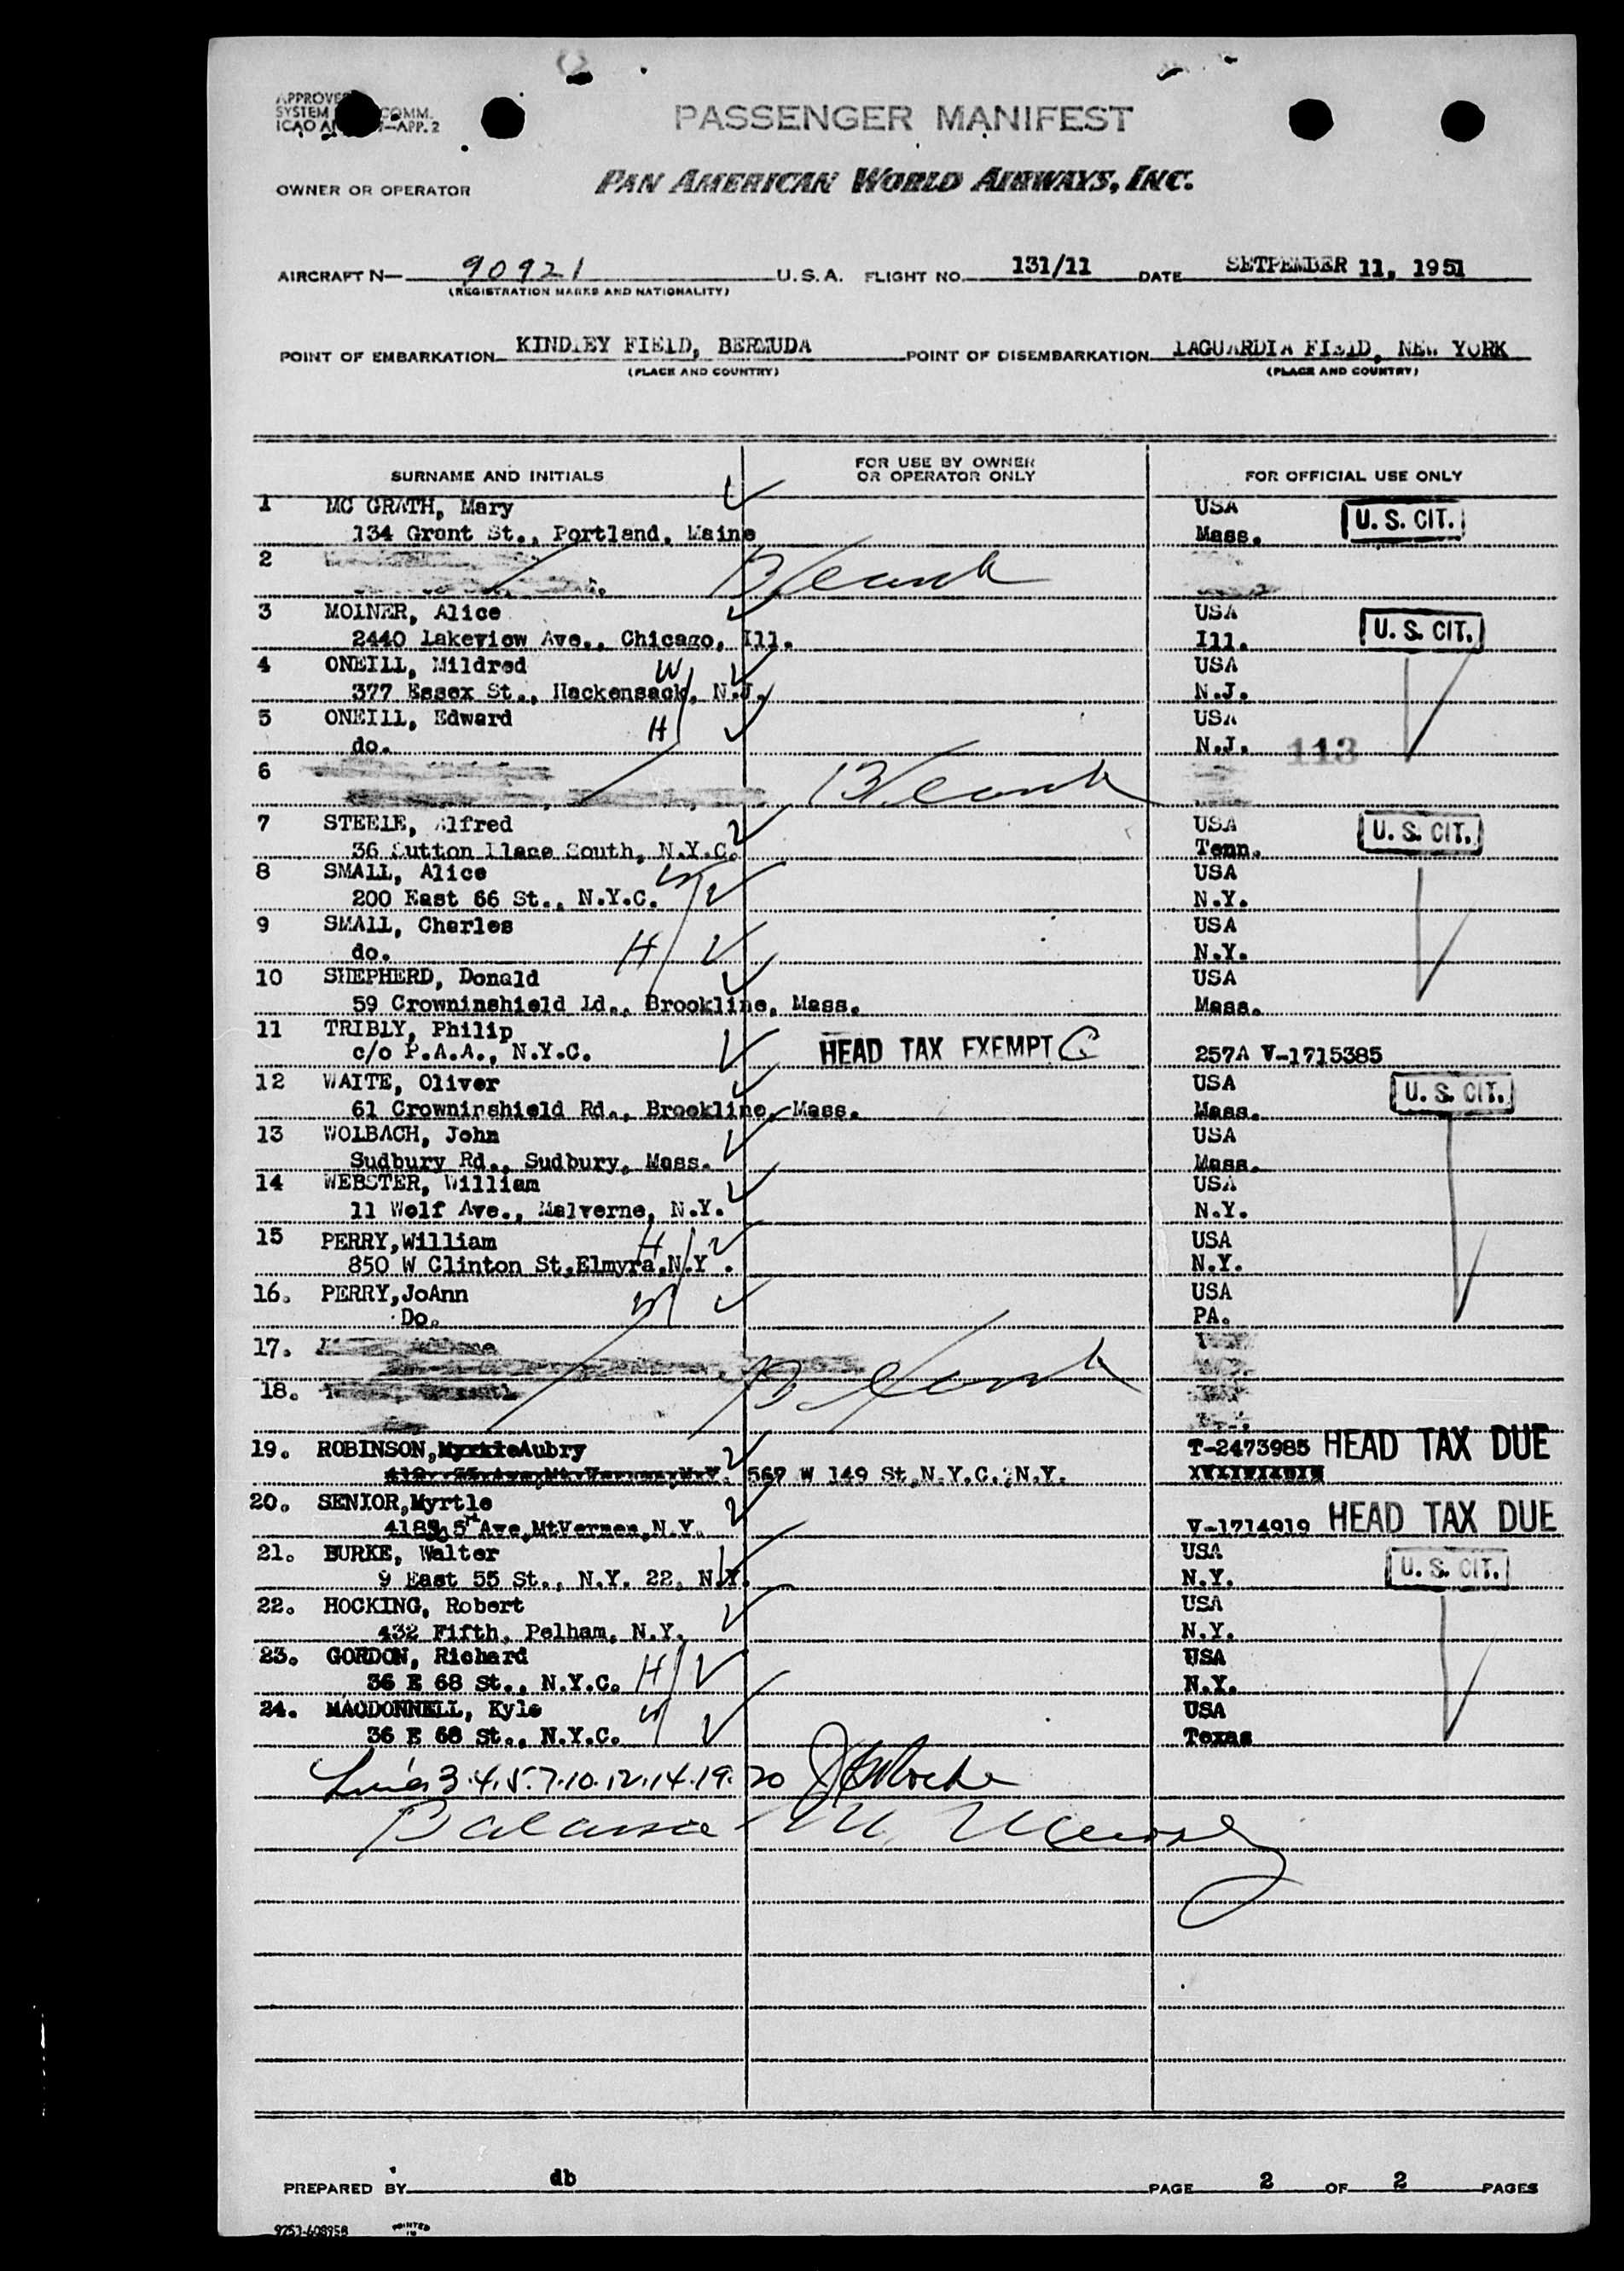 PASSENGER MANIFEST
OWNER OR OPERATOR PAN AMERICAN WORLD AIRWAYS, INC.
AIRCRAFT N— 90921 U.S.A. FLIGHT NO. 131/11 DATE SETPEMBER 11, 1951
(REGISTRATION MARKS AND NATIONALITY)
POINT OF EMBARKATION KINDLEY FIELD, BERMUDA POINT OF DISEMBARKATION LAGUARDIA FIELD, NEW YORK
(PLACE AND COUNTRY) (PLACE AND COUNTRY)
SURNAME AND INITIALS FOR USE BY OWNER OR OPERATOR ONLY FOR OFFICIAL USE ONLY
1 MC GRATH, Mary USA U. S. CIT.
134 Grant St., Portland, Maine Mass.
2 Blank
3 MOLNER, Alice USA U. S. CIT.
2440 Lakeview Ave., Chicago, Ill. Ill.
4 ONEILL, Mildred W USA
377 Essex St., Hackensack, N.J. N.J.
5 ONEILL, Edward H USA
do. N.J. 113
6 Blank
7 STEELE, Alfred USA U. S. CIT.
36 Sutton Place South, N.Y.C. Tenn.
8 SMALL, Alice W USA
200 East 66 St., N.Y.C. N.Y.
9 SMALL, Charles USA
do. H N.Y.
10 SHEPHERD, Donald USA
59 Crowninshield Rd., Brookline, Mass. Mass.
11 TRIBLY, Philip
c/o P.A.A., N.Y.C. HEAD TAX EXEMPT 257A V-1715385
12 WAITE, Oliver USA U. S. CIT.
61 Crowninshield Rd., Brookline, Mass. Mass.
13 WOLBACH, John USA
Sudbury Rd., Sudbury, Mass. Mass.
14 WEBSTER, William USA
11 Wolf Ave., Malverne, N.Y. N.Y.
15 PERRY,William H USA
850 W Clinton St,Elmyra,N.Y. N.Y.
16. PERRY,JoAnn W USA
Do. PA.
17. Blank
18.
19. ROBINSON,Aubry T-2473985 HEAD TAX DUE
567 W 149 St,N.Y.C.,N.Y.
20. SENIOR,Myrtle
418 S 5th Ave,MtVernon,N.Y. V-1714919 HEAD TAX DUE
21. BURKE, Walter USA U. S. CIT.
9 East 55 St., N.Y. 22, N.Y. N.Y.
22. HOCKING, Robert USA
432 Fifth, Pelham, N.Y. N.Y.
23. GORDON, Richard H USA
36 E 68 St., N.Y.C. N.Y.
24. MACDONNELL, Kyle W USA
36 E 68 St., N.Y.C. Texas
3.4.5.7.10.12.14.19.20
Balance
PREPARED BY db PAGE 2 OF 2 PAGES
9753-608958 PRINTED IN